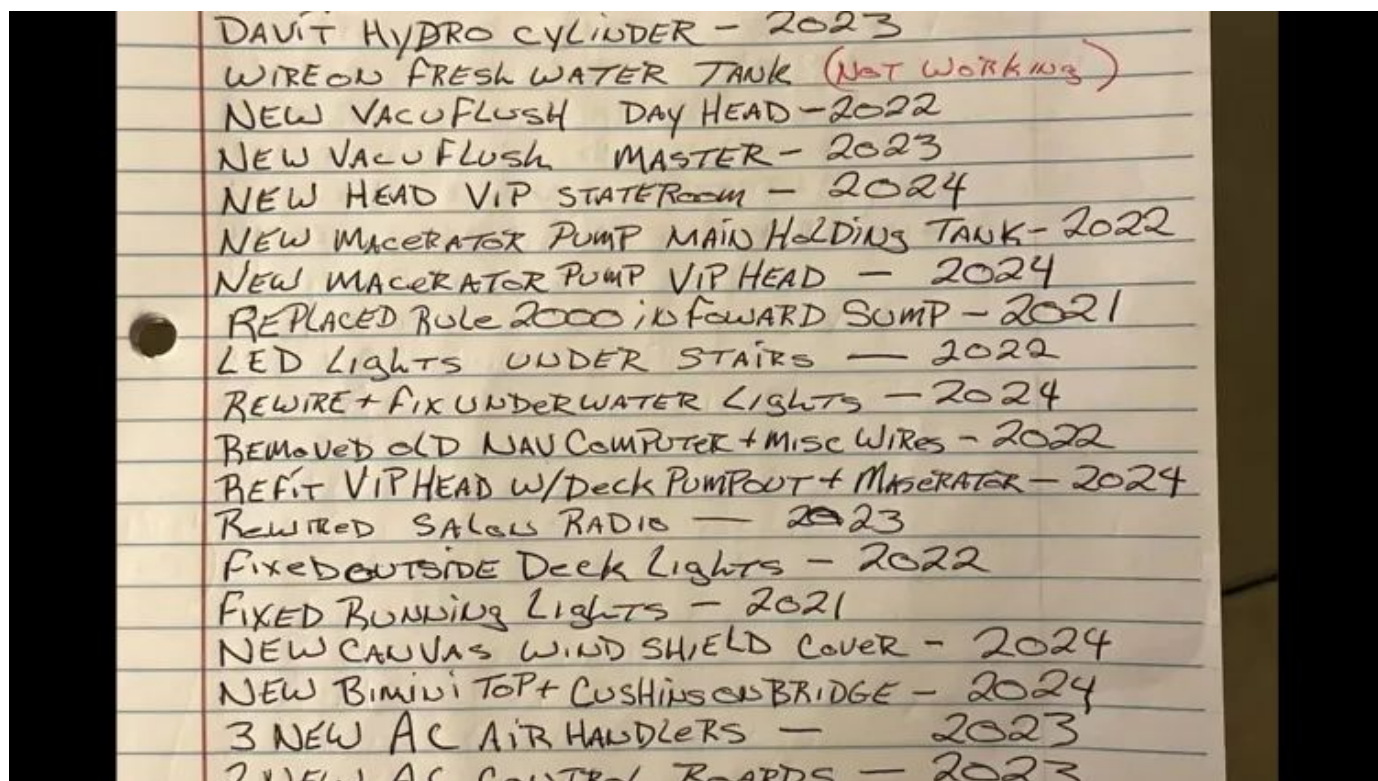 DAVIT HYDRO CYLINDER - 2023
WIREON FRESH WATER TANK (NOT WORKING)
NEW VACUFLUSH DAY HEAD - 2022
NEW VACUFLUSH MASTER - 2023
NEW HEAD VIP STATEROOM - 2024
NEW MACERATOR PUMP MAIN HOLDING TANK - 2022
NEW MACERATOR PUMP VIP HEAD - 2024
REPLACED RULE 2000 IN FOWARD SUMP - 2021
LED LIGHTS UNDER STAIRS - 2022
REWIRE + FIX UNDERWATER LIGHTS - 2024
REMOVED OLD NAV COMPUTER + MISC WIRES - 2022
REFIT VIP HEAD W/DECK PUMPOUT + MASERATOR - 2024
REWIRED SALON RADIO - 2023
FIXED OUTSIDE DECK LIGHTS - 2022
FIXED RUNNING LIGHTS - 2021
NEW CANVAS WIND SHIELD COVER - 2024
NEW BIMINI TOP + CUSHINS ON BRIDGE - 2024
3 NEW AC AIR HANDLERS - 2023
2 NEW AC CONTROL BOARDS - 2023